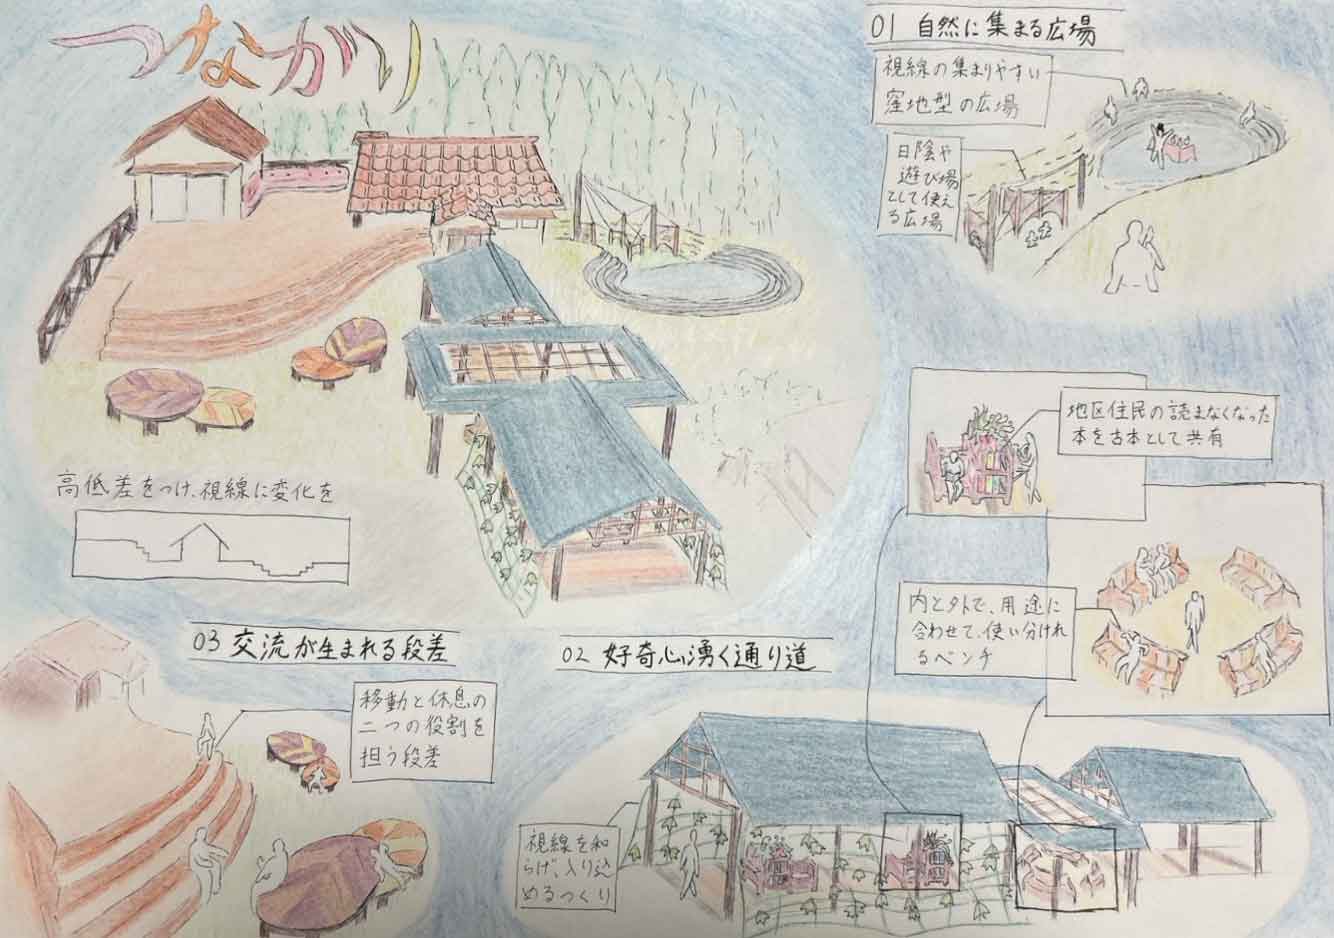 つながり
01 自然に集まる広場
視線の集まりやすい
窪地型の広場
日陰や
遊び場
として使え
る広場
高低差をつけ、視線に変化を
地区住民の読まなくなった
本を古本として共有
内と外で、用途に
合わせて、使い分けれ
るベンチ
03 交流が生まれる段差
移動と休息の
二つの役割を
担う段差
02 好奇心湧く通り道
視線を和
らげ、入り込
めるつくり